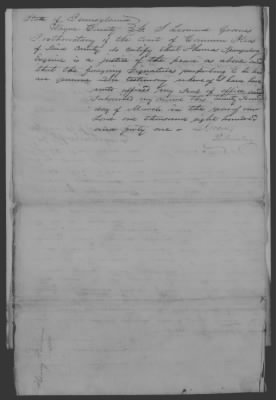 State of Pennsylvania
Wayne County Ss. I Leonard Graves
Prothonotary of the Court of Common Pleas
of said County do certify that Thomas Spangenberg
Esquire is a justice of the peace as above and
that the foregoing signature purporting to be his
are genuine In testimony whereof I have here
unto affixed my Seal of office and
subscribed my name this twenty
day of March in the year of our
Lord one thousand eight hundred
and forty one